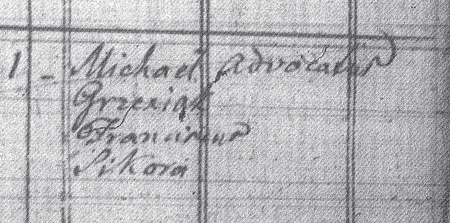 1 - Michael Advocatus
Grzesiak
Franciscus
Sikora